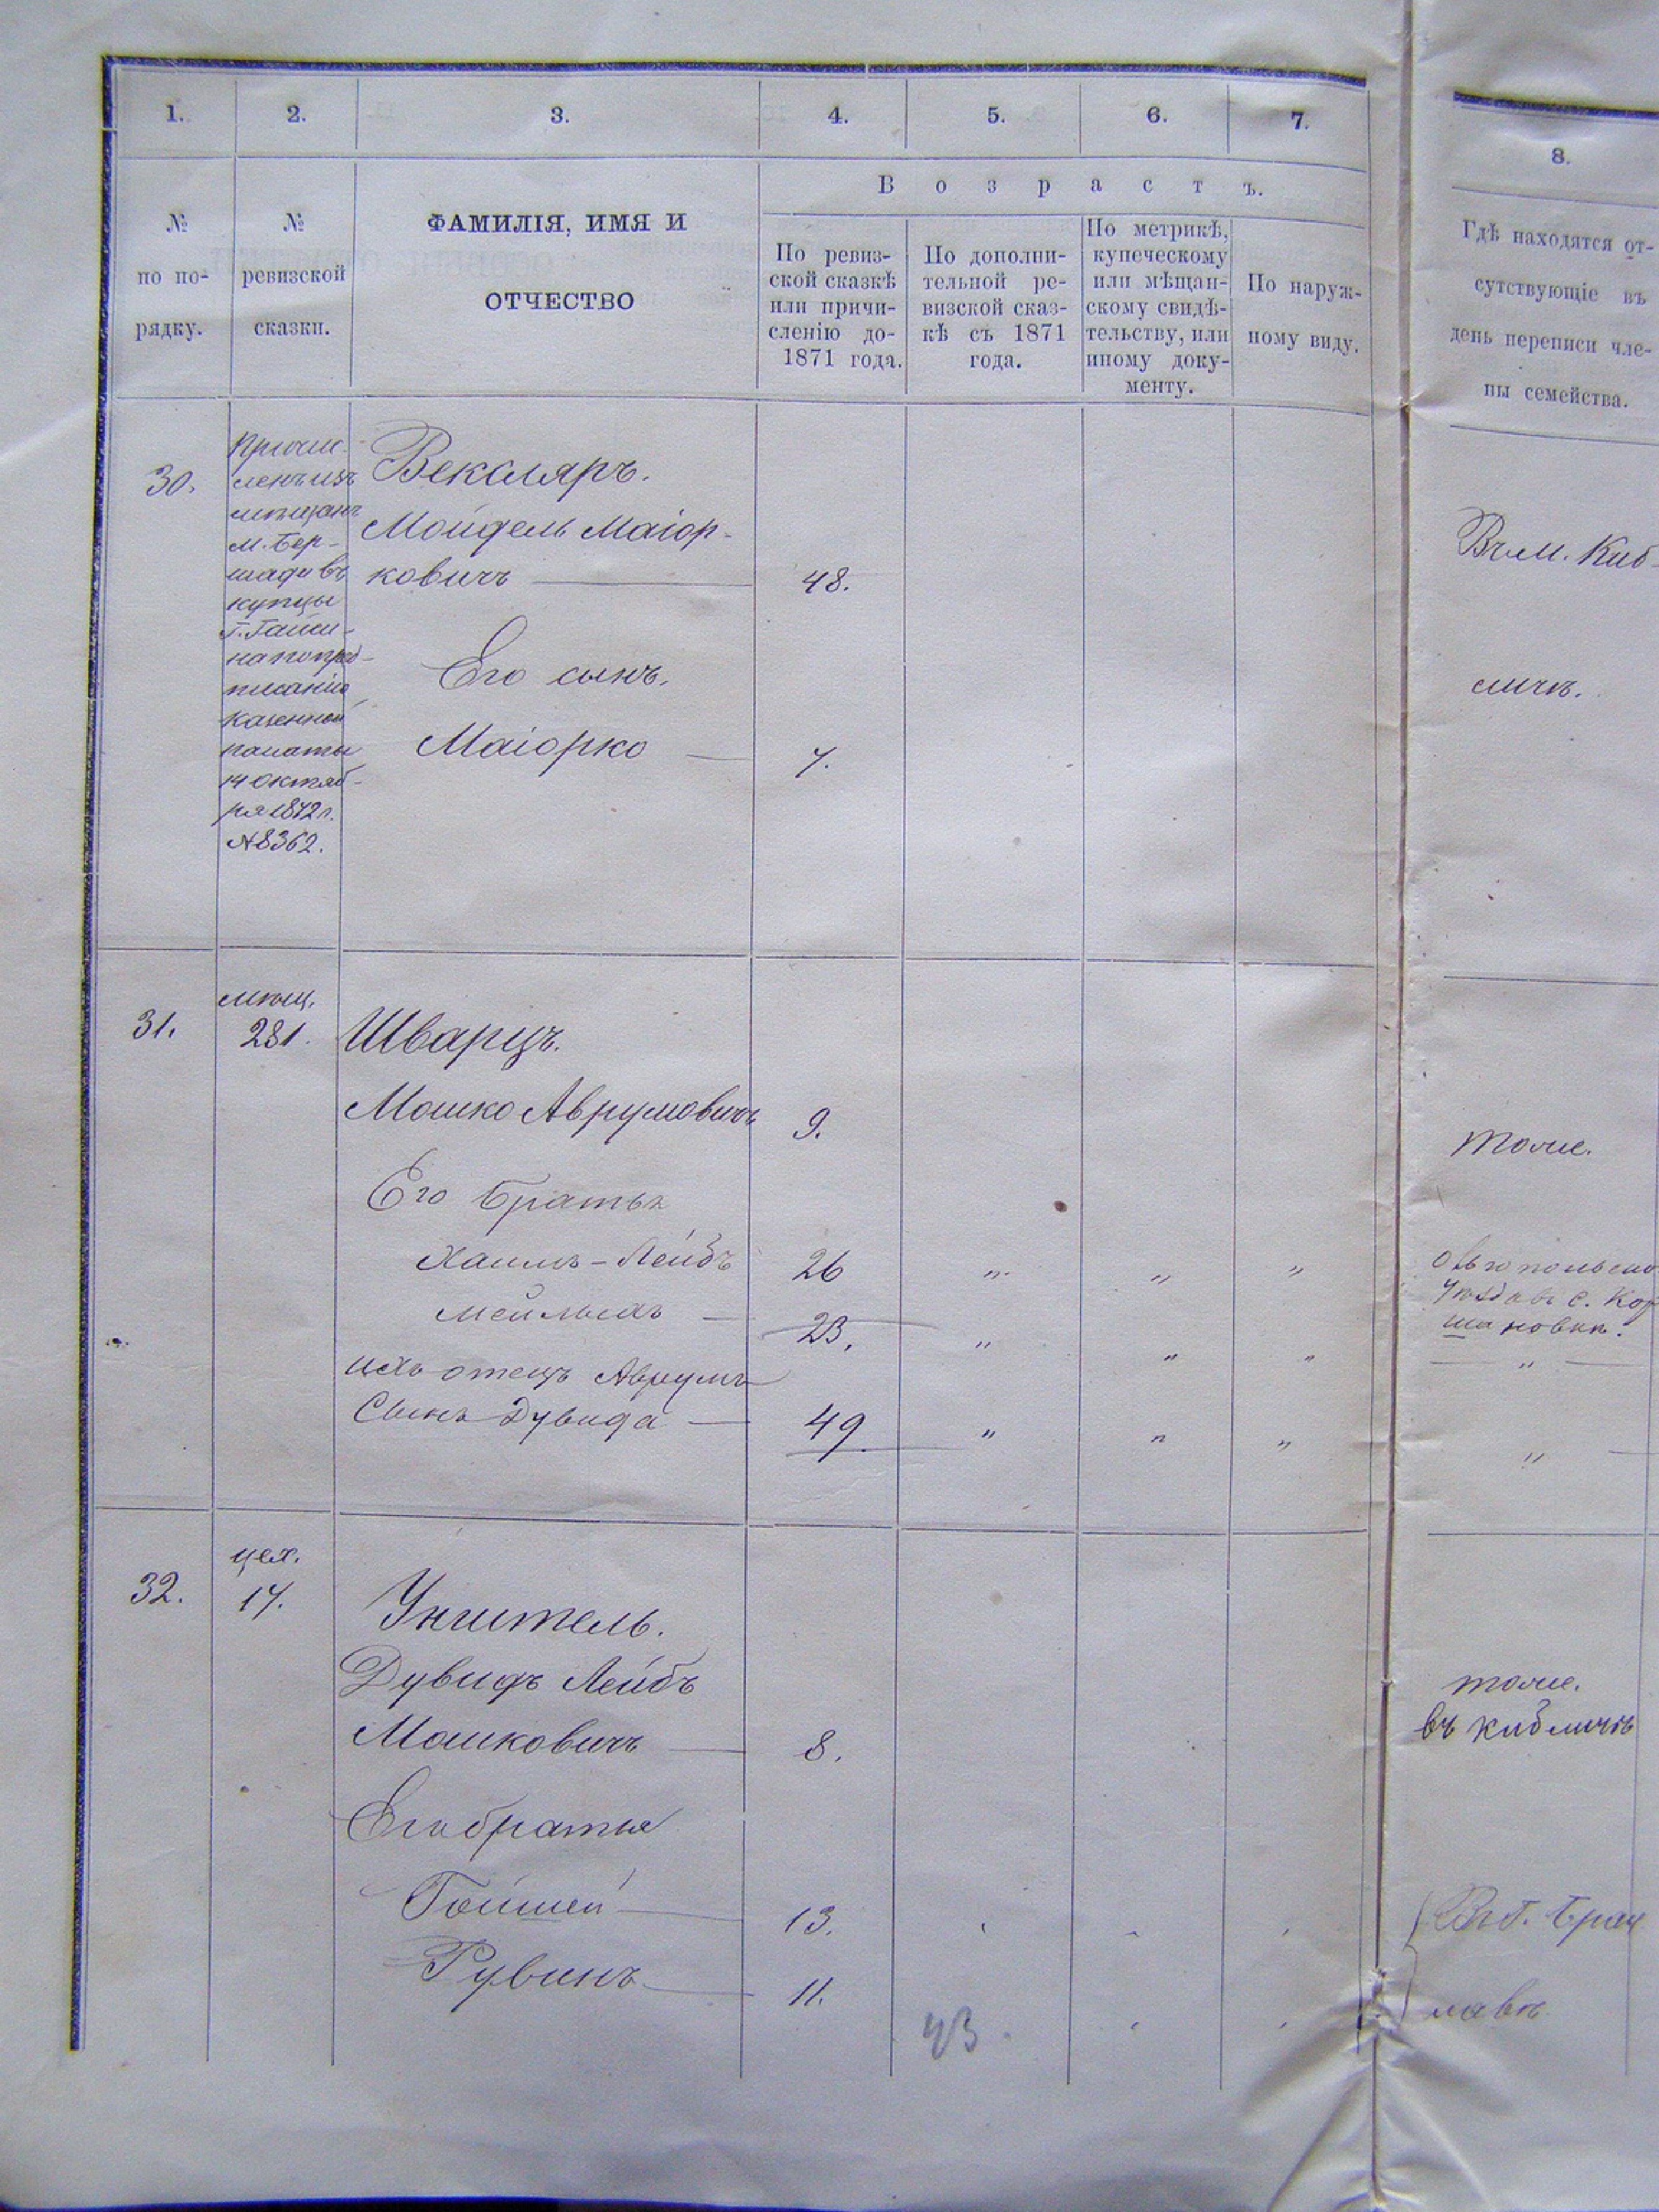 1.
2.
3.
4.
5.
6.
7.
8.
№ по по-
рядку.
№
ревизской
сказки.
ФАМИЛІЯ, ИМЯ И
ОТЧЕСТВО
Возрастъ.
По ревиз-
ской сказкѣ
или причи-
сленію до-
1871 года.
По дополни-
тельной ре-
визской сказ-
кѣ съ 1871
года.
По метрикѣ,
купеческому
или мѣщан-
скому свидѣ-
тельству, или
иному доку-
менту.
По наруж-
ному виду.
Гдѣ находятся от-
сутствующіе въ
день переписи чле-
ны семейства.
30.
Причис-
ленъ изъ
мѣщанъ
м. Бер-
шади въ
купцы
г. Гайси-
на по пред-
писанію
Казенной
палаты
14 октяб-
ря 1872 г.
№ 8362.
Векслярь.
Мойдель Маіор-
ковичъ 48.
Въ м. Киб-
Его сынъ.
личѣ.
Маіорко 7.
31.
мѣщ.
281.
Шварцъ.
Мошко Аврумовичъ 9.
тоже.
Его братья
Хаимъ-Лейбъ 26 " " "
Ольгопольско
уѣзда въ с. Кор
шановкѣ.
23. " " " "
ихъ отецъ Аврумъ
Сынъ Дувида 49. " " " "
32.
цех.
17.
Учитель.
Дувидъ Лейбъ
Мошковичъ 8.
тоже.
въ Кибличѣ
Его братья
13.
Рувинъ 11.
Въ г. Брац
лавѣ
43.